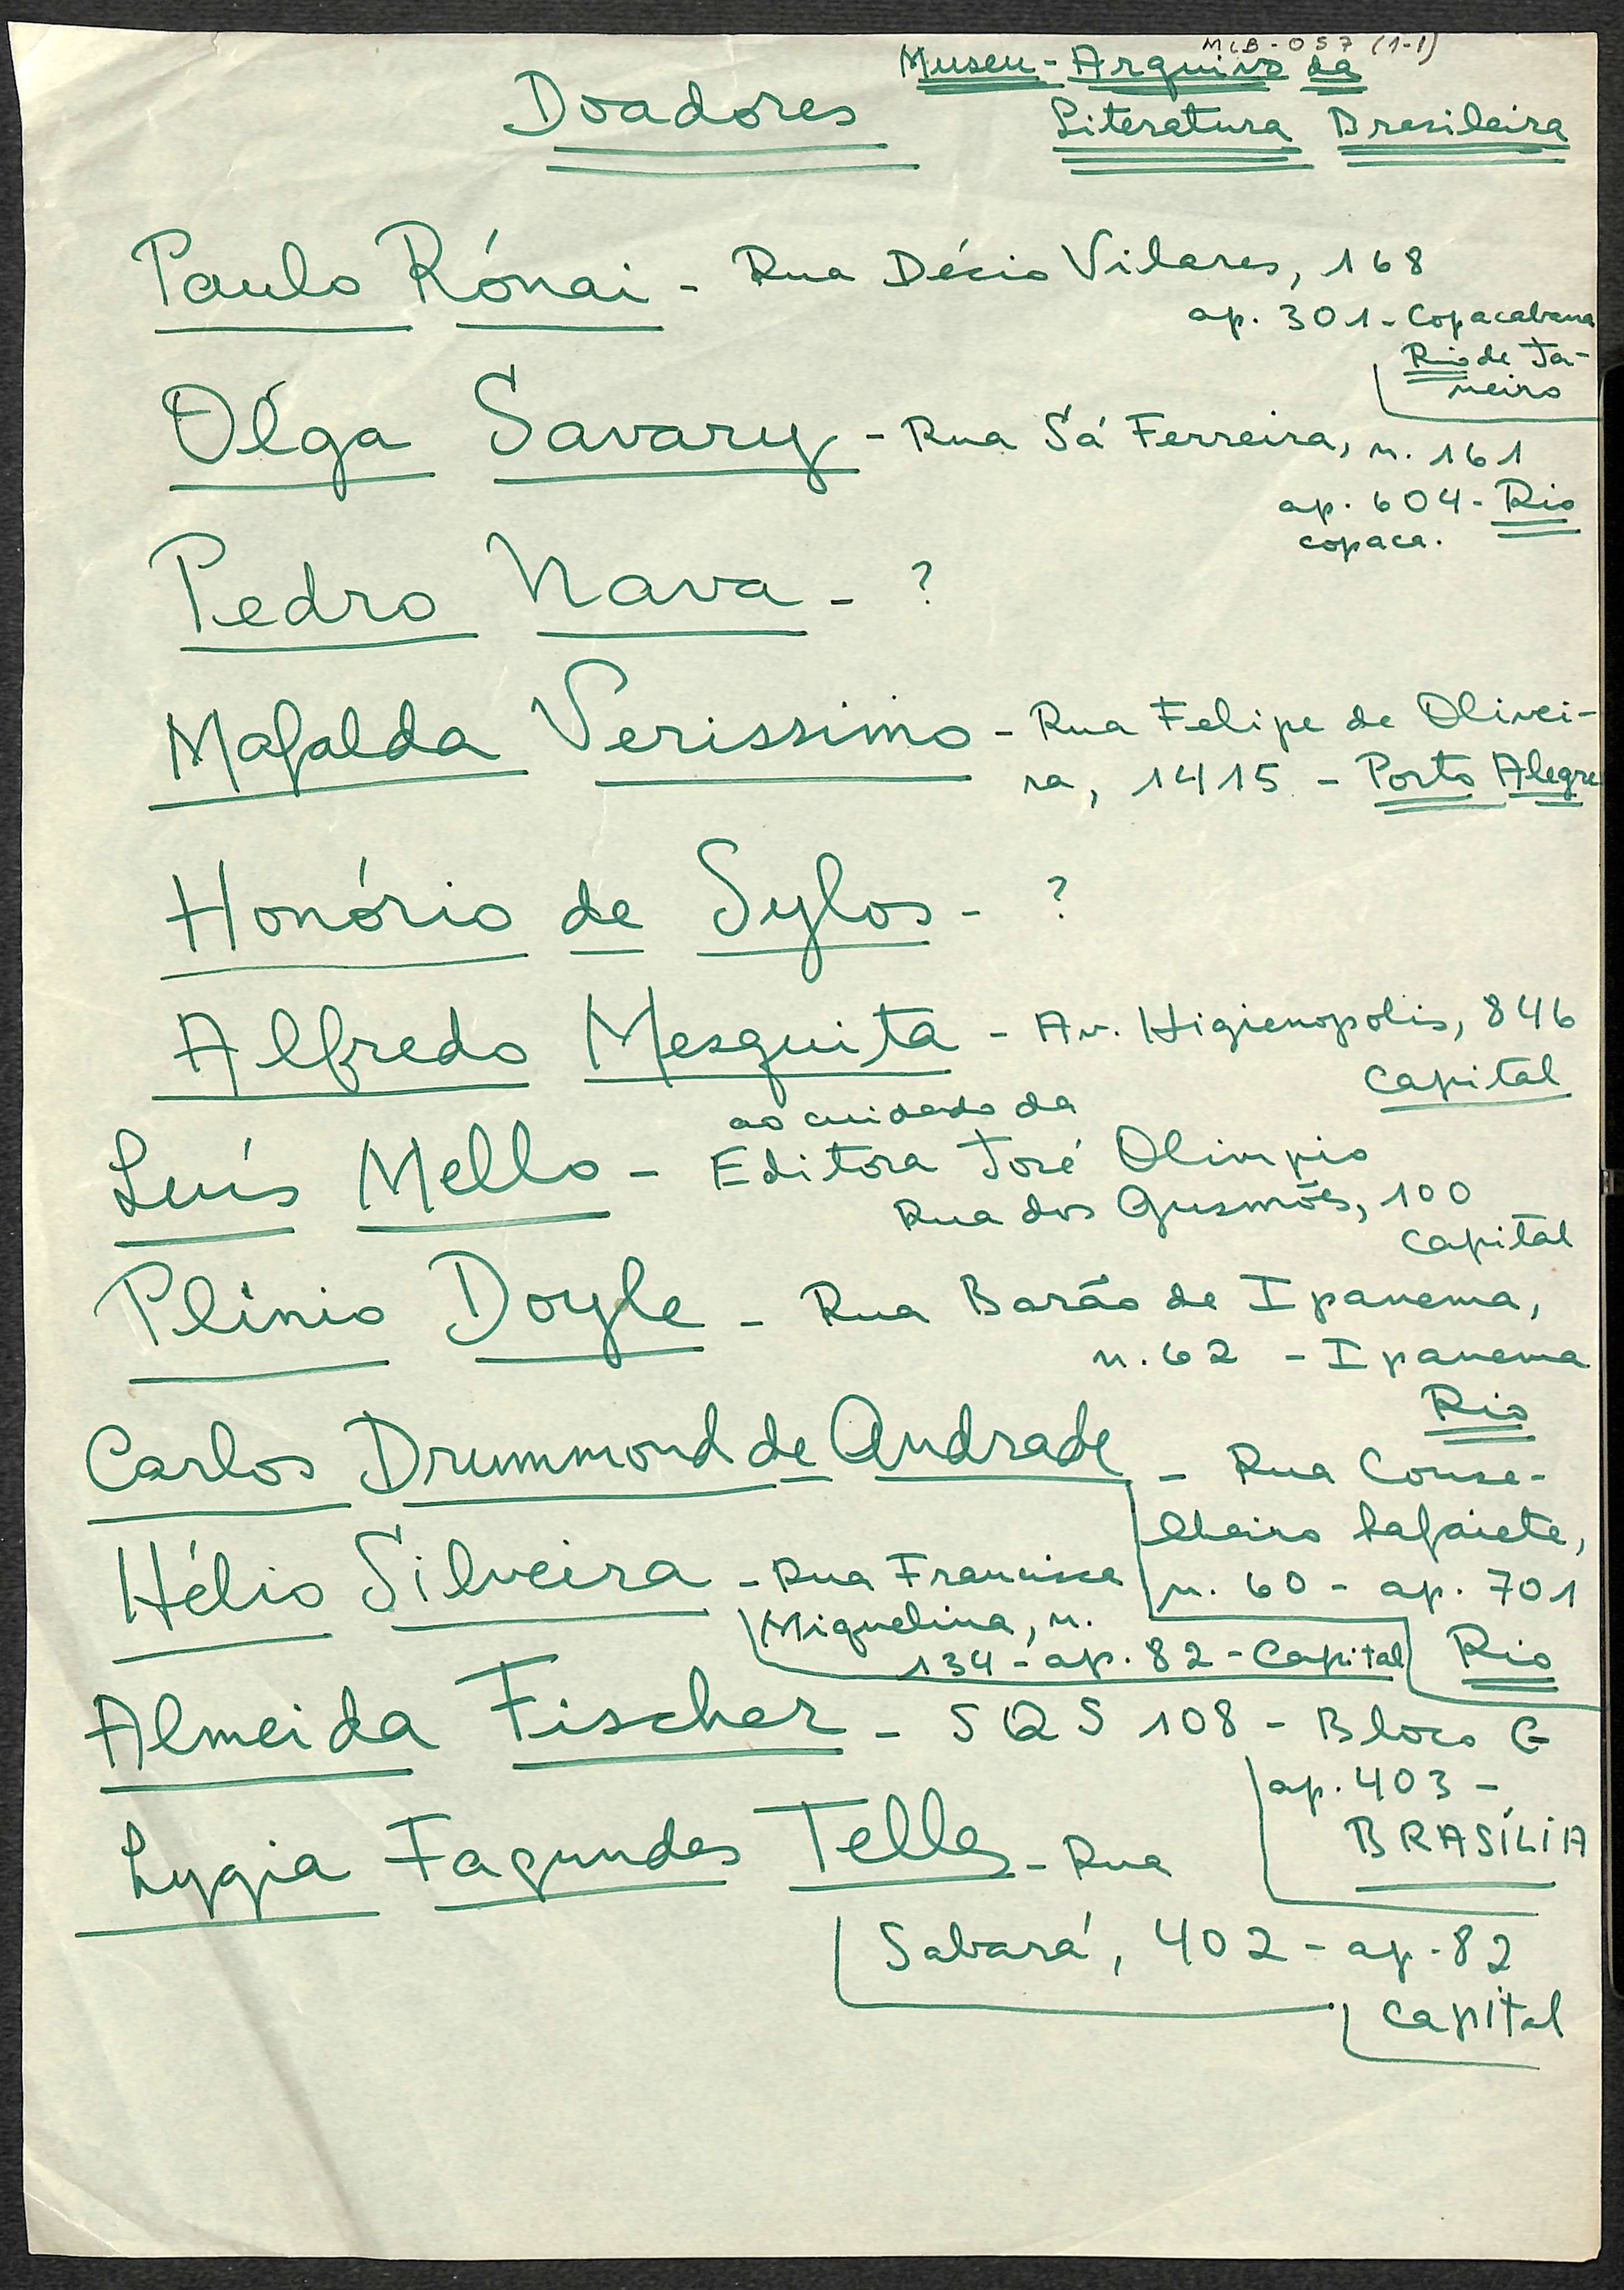 MLB-057 (1-1)
Museu-Arquivo da
Doadores
Literatura Brasileira
Paulo Rónai - Rua Décio Vilares, 168
ap. 301 - Copacabana
Rio de Ja-
neiro
Olga Savary - Rua Sá Ferreira, n. 161
ap. 604 - Rio
copaca.
Pedro Nava - ?
Mafalda Verissimo - Rua Felipe de Olivei-
ra, 1415 - Porto Alegre
Honório de Sylos - ?
Alfredo Mesquita - Av. Higienopolis, 846
Capital
ao cuidado da
Luís Mello - Editora José Olimpio
Rua dos Gusmões, 100
Capital
Plínio Doyle - Rua Barão de Ipanema,
n. 62 - Ipanema
Rio
Carlos Drummond de Andrade - Rua Conse-
lheiro Lafaiete,
n. 60 - ap. 701
Rio
Hélio Silveira - Rua Francisca
Miquelina, n.
134 - ap. 82 - Capital
Almeida Fischer - SQS 108 - Bloco G
ap. 403 -
BRASÍLIA
Lygia Fagundes Telles - Rua
Sabará, 402 - ap. 82
Capital